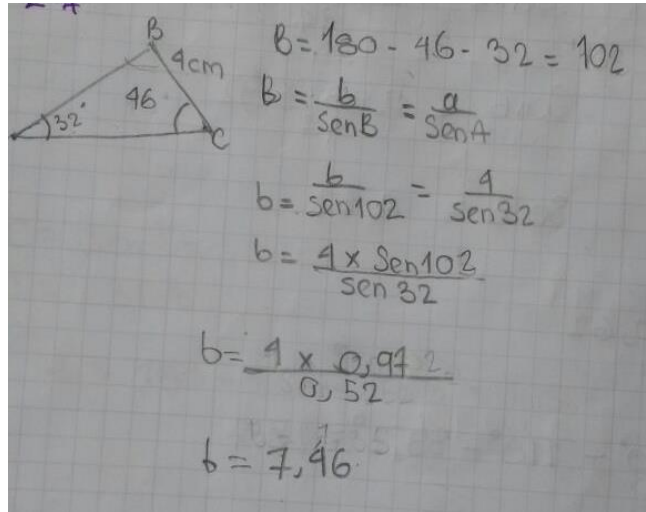 B
4cm
46
32°
C
B = 180 - 46 - 32 = 102
B = b/SenB = a/SenA
b = b/sen102 = 4/sen32
b = 4 x Sen102/sen 32
b = 4 x 0,97 2/0,52
b = 7,46